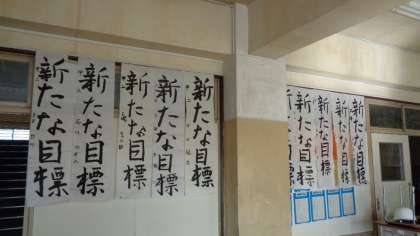 新たな目標
新たな目標
新たな目標
新たな目標
新たな目標
新たな目標
新たな目標
新たな目標
新たな目標
新たな目標